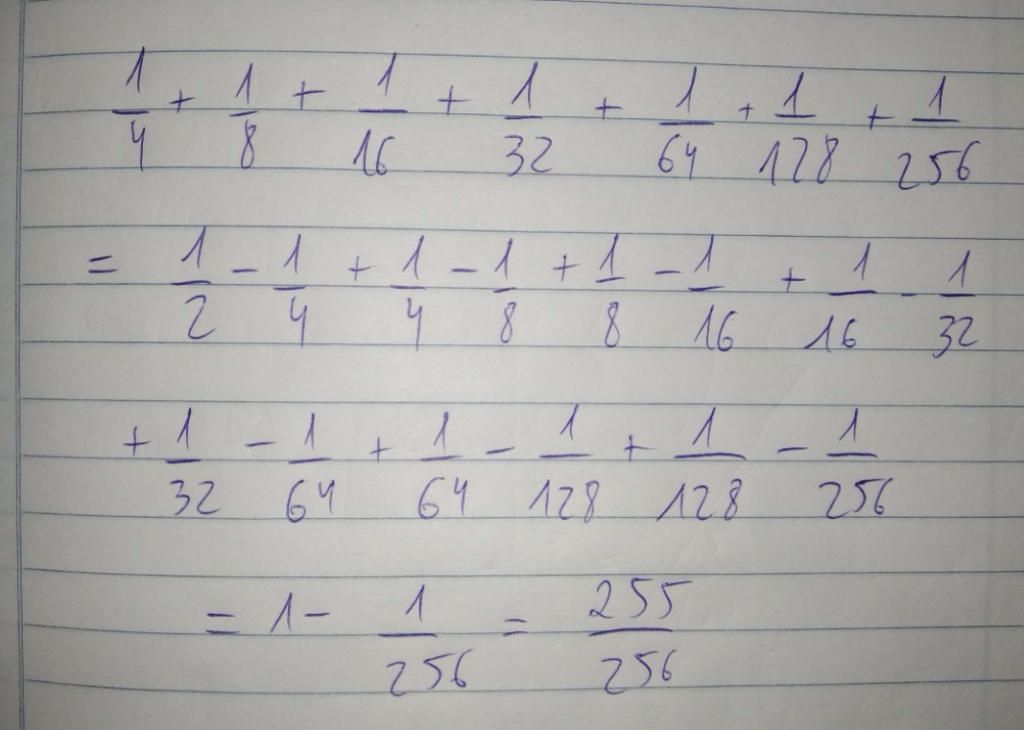 1/4 + 1/8 + 1/16 + 1/32 + 1/64 + 1/128 + 1/256
= 1/2 - 1/4 + 1/4 - 1/8 + 1/8 - 1/16 + 1/16 - 1/32
+ 1/32 - 1/64 + 1/64 - 1/128 + 1/128 - 1/256
= 1 - 1/256 = 255/256